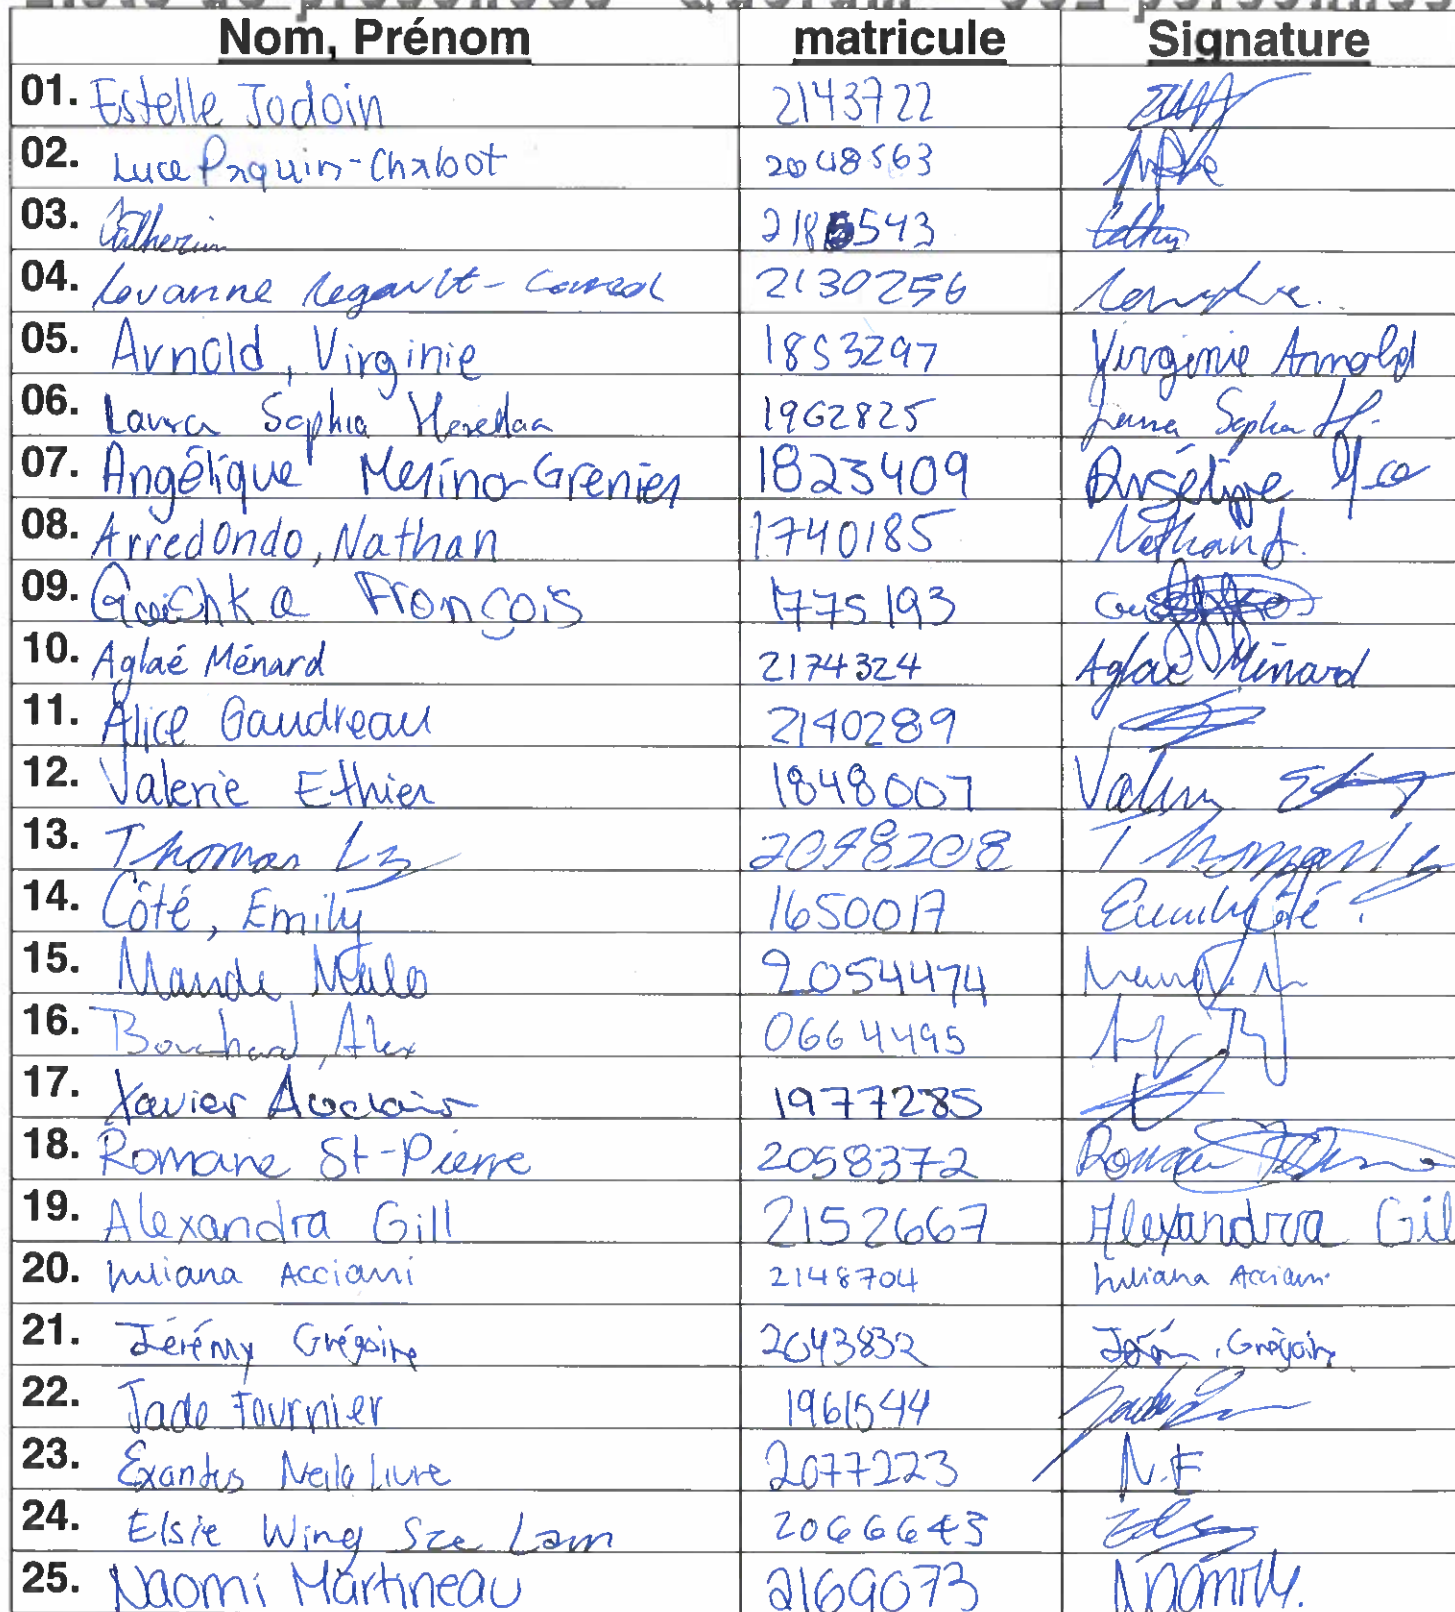 Liste de présences - Quorum - 
Nom, Prénom matricule Signature
01. Estelle Jodoin 2143722
02. Luce Paquin-Chabot 2048563
03. Catherin 218 543
04. Lovanne Legault- 2130256
05. Arnold, Virginie 1853297 Virginie Arnold
06. Laura Sophia Heredia 1962825 Laura Sophia H.
07. Angélique Merino-Grenier 1823409 Angélique
08. Arredondo, Nathan 1740185 Nathan A.
09. Gaishka François 1775193
10. Aglaé Ménard 2174324 Aglaé Ménard
11. Alice Gaudreau 2140289
12. Valerie Ethier 1848007
13. Thomas 2098208 Thomas
14. Côté, Emily 1650017 Emily Côté
15. Maude Malo 2054474
16. Bouchard, Alex 0664495
17. Xavier Auclair 1977285
18. Romane St-Pierre 2058372
19. Alexandra Gill 2152667 Alexandra Gil
20. Iuliana Acciani 2148704 Iuliana Acciani
21. Jérémy Grégoire 2043832 Grégoire
22. Jade Fournier 1961544
23. Exantus Neila Live 2077223 N.E
24. Elsie Wing Sze Lam 2066643
25. Naomi Martineau 2169073